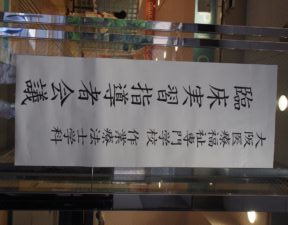 大阪医療福祉専門学校 作業療法士学科
臨床実習指導者会議